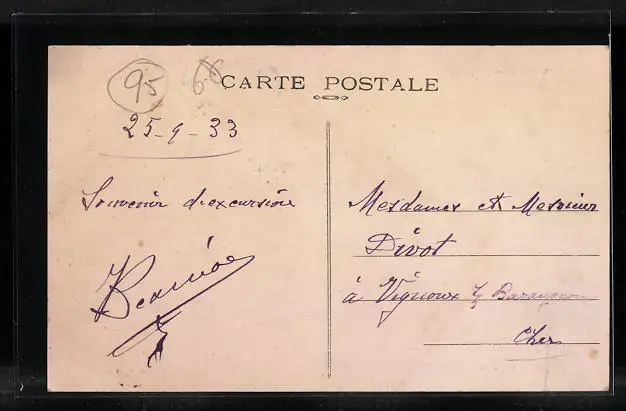 95
CARTE POSTALE
25-9-33
Souvenir d'excursion
Mesdames et Messieurs
Divot
à Vignoux s/ Barangeon
Cher